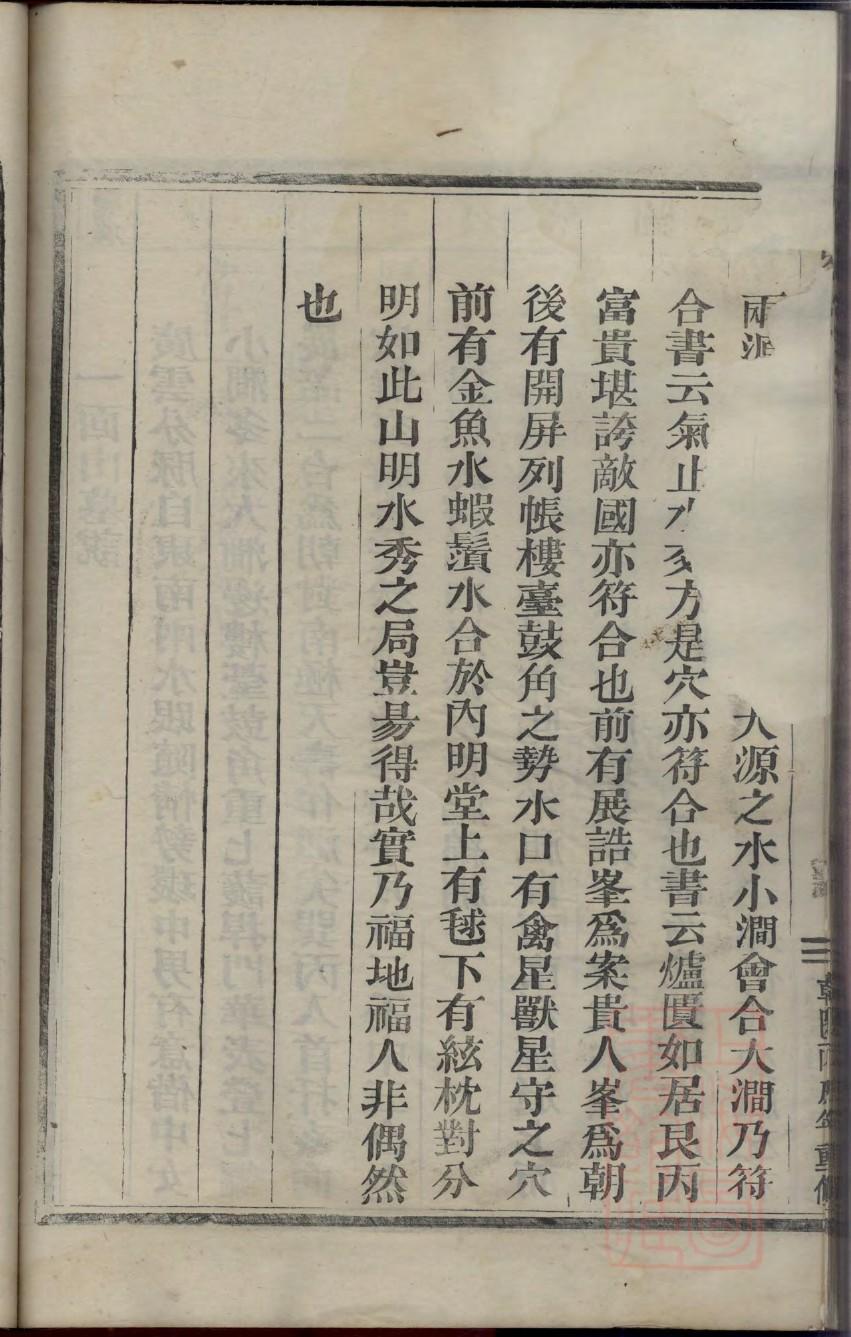 兩派大源之水小澗會合大澗乃符
合書云氣止水交方是穴亦符合也書云爐匱如居艮丙
富貴堪誇敵國亦符合也前有展誥峯爲案貴人峯爲朝
後有開屏列帳樓臺鼓角之勢水口有禽星獸星守之穴
前有金魚水蝦鬚水合於內明堂上有毬下有絃枕對分
明如此山明水秀之局豈易得哉實乃福地福人非偶然
也